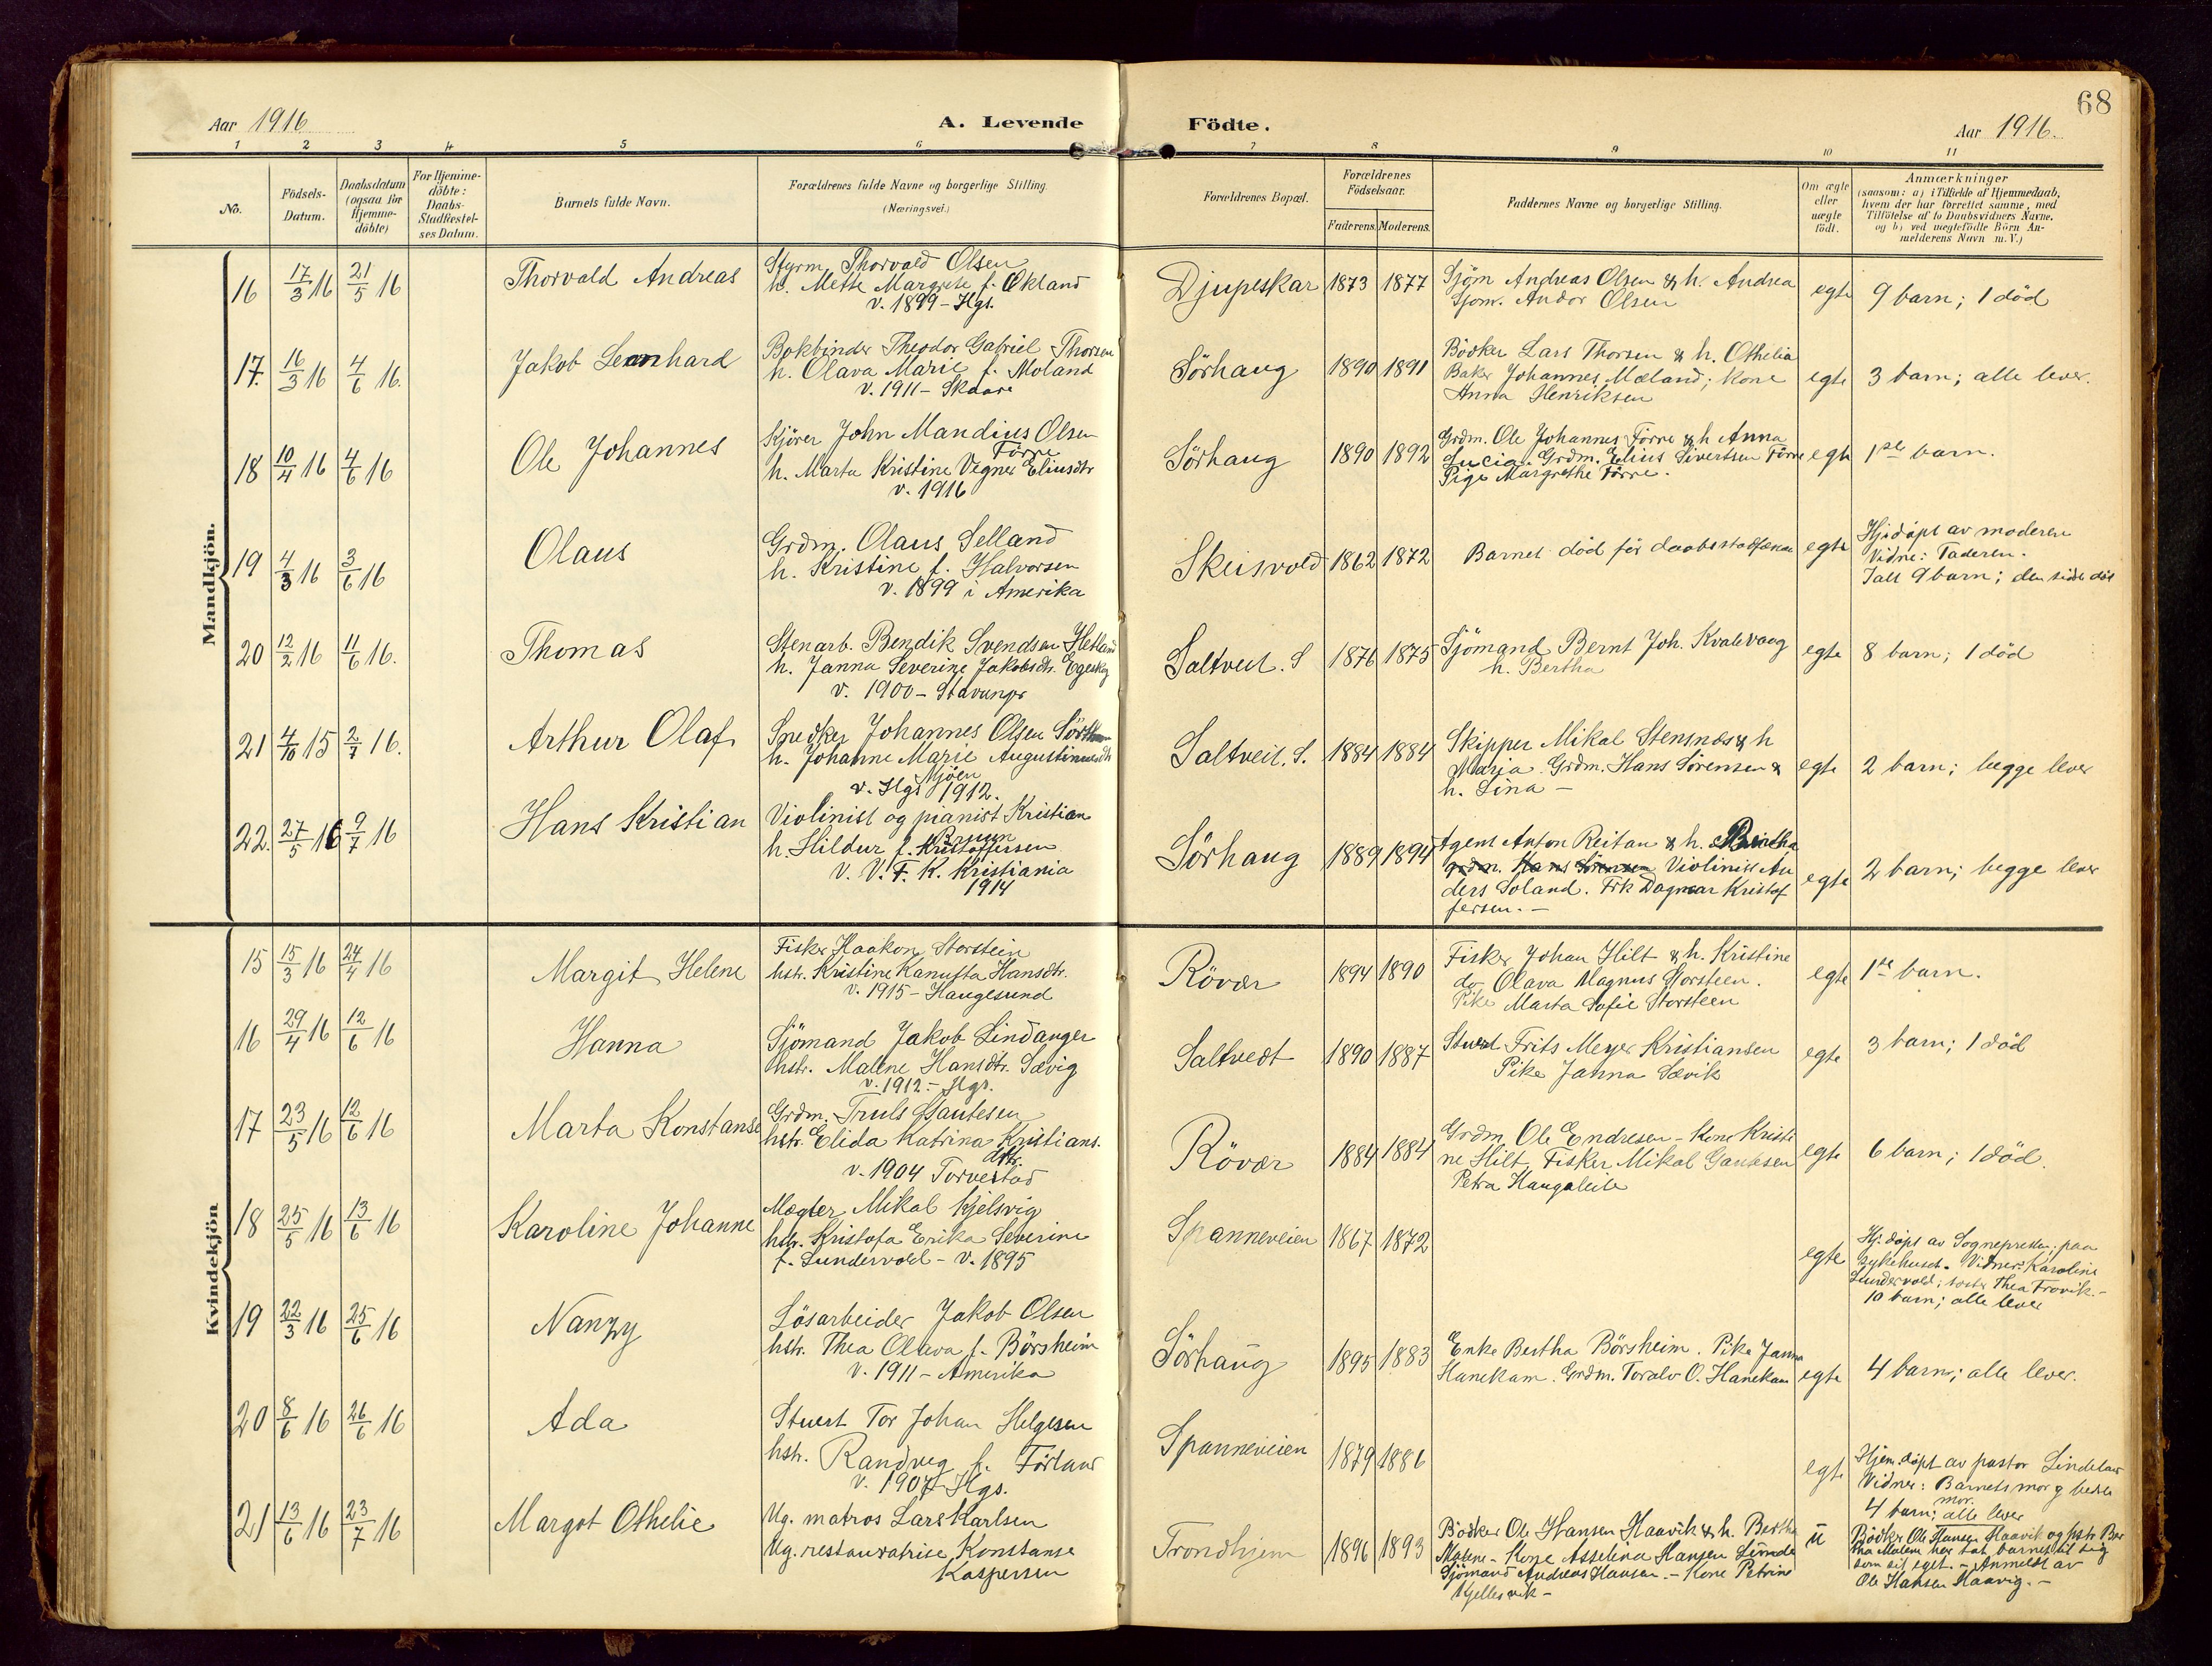 68
Aar 1916
A. Levende Födte.
Aar 1916.
1 2 3 4 5 6 7 8 9 10 11
No.
Födsels-Datum.
Daabsdatum (ogsaa for Hjemme-döbte)
For Hjemme-döbte: Daabs-Stadfæstel-ses Datum.
Barnets fulde Navn.
Forældrenes fulde Navne og borgerlige Stilling.
(Næringsvei.)
Forældrenes Bopæl.
Forældrenes Födselsaar.
Faderens. Moderens.
Faddernes Navne og borgerlige Stilling.
Om ægte eller uægte födt.
Anmærkninger
(saasom: a) i Tilfælde af Hjemmedaab, hvem der har forrettet samme, med Tilföielse af to Daabsvidners Navne. og b) ved uægtefödte Börn An-melderens Navn m. V.)
Mandkjön.
16 17/3 16 21/5 16 Thorvald Andreas
Styrm. Thorvald Olsen
h. Mette Margrete f. Økland
v. 1899 - Hgs.
Djupeskar 1873 1877
Sjöm Andreas Olsen & h. Andrea
Sjom. Andor Olsen
egte 9 barn; 1 död
17. 16/3 16 4/6 16. Jakob Leonhard
Bokbinder Theodor Gabriel Thorsen
h. Olava Marie f. Moland
v. 1911 - Skaare
Sörhaug 1890 1891
Bödker Lars Thorsen & h. Othelia
Baker Johannes Mæland; kone
Anna Henriksen
egte 3 barn; alle lever.
18 10/4 16 4/6 16 Ole Johannes
Kjörer John Mandius Olsen
Förre
h. Marta Kristine Vegner Eliusdtr
v. 1916
Sörhaug 1890 1892
Grdm. Ole Johannes Förre & h Anna
Lucia. Grdm. Elius Sivertsen Förre
Pige Margrethe Förre.
egte 1ste barn.
19 4/3 16 3/6 16 Olaus
Grdm. Olaus Selland
h. Kristine f. Halvorsen
v. 1899 i Amerika
Skeisvold 1862 1872
Barnet död för daabsstadfæs
egte
Hjdöpt av moderen
Vidne: Faderen.
Ialt 9 barn; den sidste död
20 12/2 16 11/6 16. Thomas
Stenarb. Bendik Svendsen Hetland
h. Janna Severine Jakobsdtr. Egeskog
v. 1900 - Stavanger
Saltveit. S 1876 1875
Sjömand Bernt Joh. Kvalevaag
h. Bertha
egte 8 barn; 1 död
21 4/10 15 2/7 16. Arthur Olaf
Snedker Johannes Olsen
h. Johanne Marie Augustinusdtr
Mjöen
v. Hgs 1912.
Saltveit. S. 1884 1884
Skipper Mikal Stensnæs & h
Maria. Grdm. Hans Sörensen &
h. Lina -
egte 2 barn; begge lever
22. 27/5 16 9/7 16 Hans Kristian
Violinist og pianist Kristian
Bruun
h. Hildur f. Kristoffersen
v. V. F. K. Kristiania
1914
Sörhaug 1889 1894
Agent Anton Reitan & h. Bertha
grdm. Hans Sörensen Violinist An
ders Soland. Frk Dagmar Kristof
fersen. -
egte 2 barn; begge lever
Kvindekjön
15 15/3 16 24/4 16 Margit Helene
Fisker Haakon Storstein
hstr. Kristine Kanutta Hansdtr.
v. 1915 - Haugesund
Rövær 1894 1890
Fisker Johan Hilt & h. Kristine
do Olava Magnus Storsteen.
Pike Marta Sofie Storsteen
egte 1ste barn.
16 29/4 16 12/6 16 Hanna
Sjömand Jakob Lindanger
hstr. Malene Hansdtr. Sævig
v. 1912 - Hgs.
Saltvedt 1890 1887
Stuert Frits Meyer Kristiansen
Pike Janna Sævik
egte 3 barn; 1 död
17 23/5 16 12/6 16 Marta Konstanse
Grdm. Truls Gautesen
hstr. Elida Katrina Kristians.
dtr.
v. 1904 Torvestad
Rövær 1884 1884
Grdm Ole Endresen - Kone Kristi
ne Hilt, Fisker Mikal Gautesen
Petra Haugaleite
egte 6 barn; 1 död.
18 25/5 16 13/6 16 Karoline Johanne
Mægler Mikal Kjelsvig
hstr. Kristofa Erika Severine
f. Sundervold - v. 1895
Spanneveien 1867 1872
egte
Hj. döpt av Sognepresten; paa
sykehuset. Vidner: Karoline
Sundervold; söster Thea Frovik. -
10 barn; alle lever
19 22/3 16 25/6 16 Nanzy
Lösarbeider Jakob Olsen
hstr. Thea Olava f. Börsheim
v. 1911 - Amerika
Sörhaug 1895 1883
Enke Bertha Börsheim. Pike Janna
Hanekam. Grdm. Toralv O. Hanekam
egte 4 barn; alle lever.
20 8/6 16 26/6 16 Ada
Stuert Tor Johan Helgesen
hstr. Randveg f. Förland
v. 1907 Hgs.
Spanneveien 1879 1886
egte
Hjem.döpt av pastor Lindeland
Vidner: Barnets mor og beste
mor.
4 barn; alle lever
21 13/6 16 23/7 16 Margot Othelie
Ug. matros Lars Karlsen
Ug. restauratrise Konstanse
Kaspersen
Trondhjem 1896 1893
Bödker Ole Hansen Haavik & h. Bertha
Malene - Kone Asselina Hansen Lunde
Sjömand Andreas Hansen. - Kone Petrine
Kjellesvik -
u
Bödker Ole Hansen Haavik og hstr. Ber
tha Malene har tat barnet til sig
som sit eget. - Anmeldt av
Ole Hansen Haavig. -